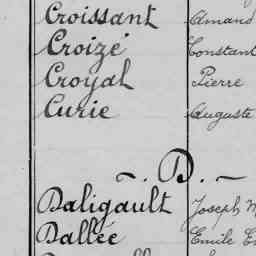 Croissant Amand
Croizé Constant
Croyal Pierre
Curie Auguste
~ D. ~
Daligault Joseph M
Dallée Emile E